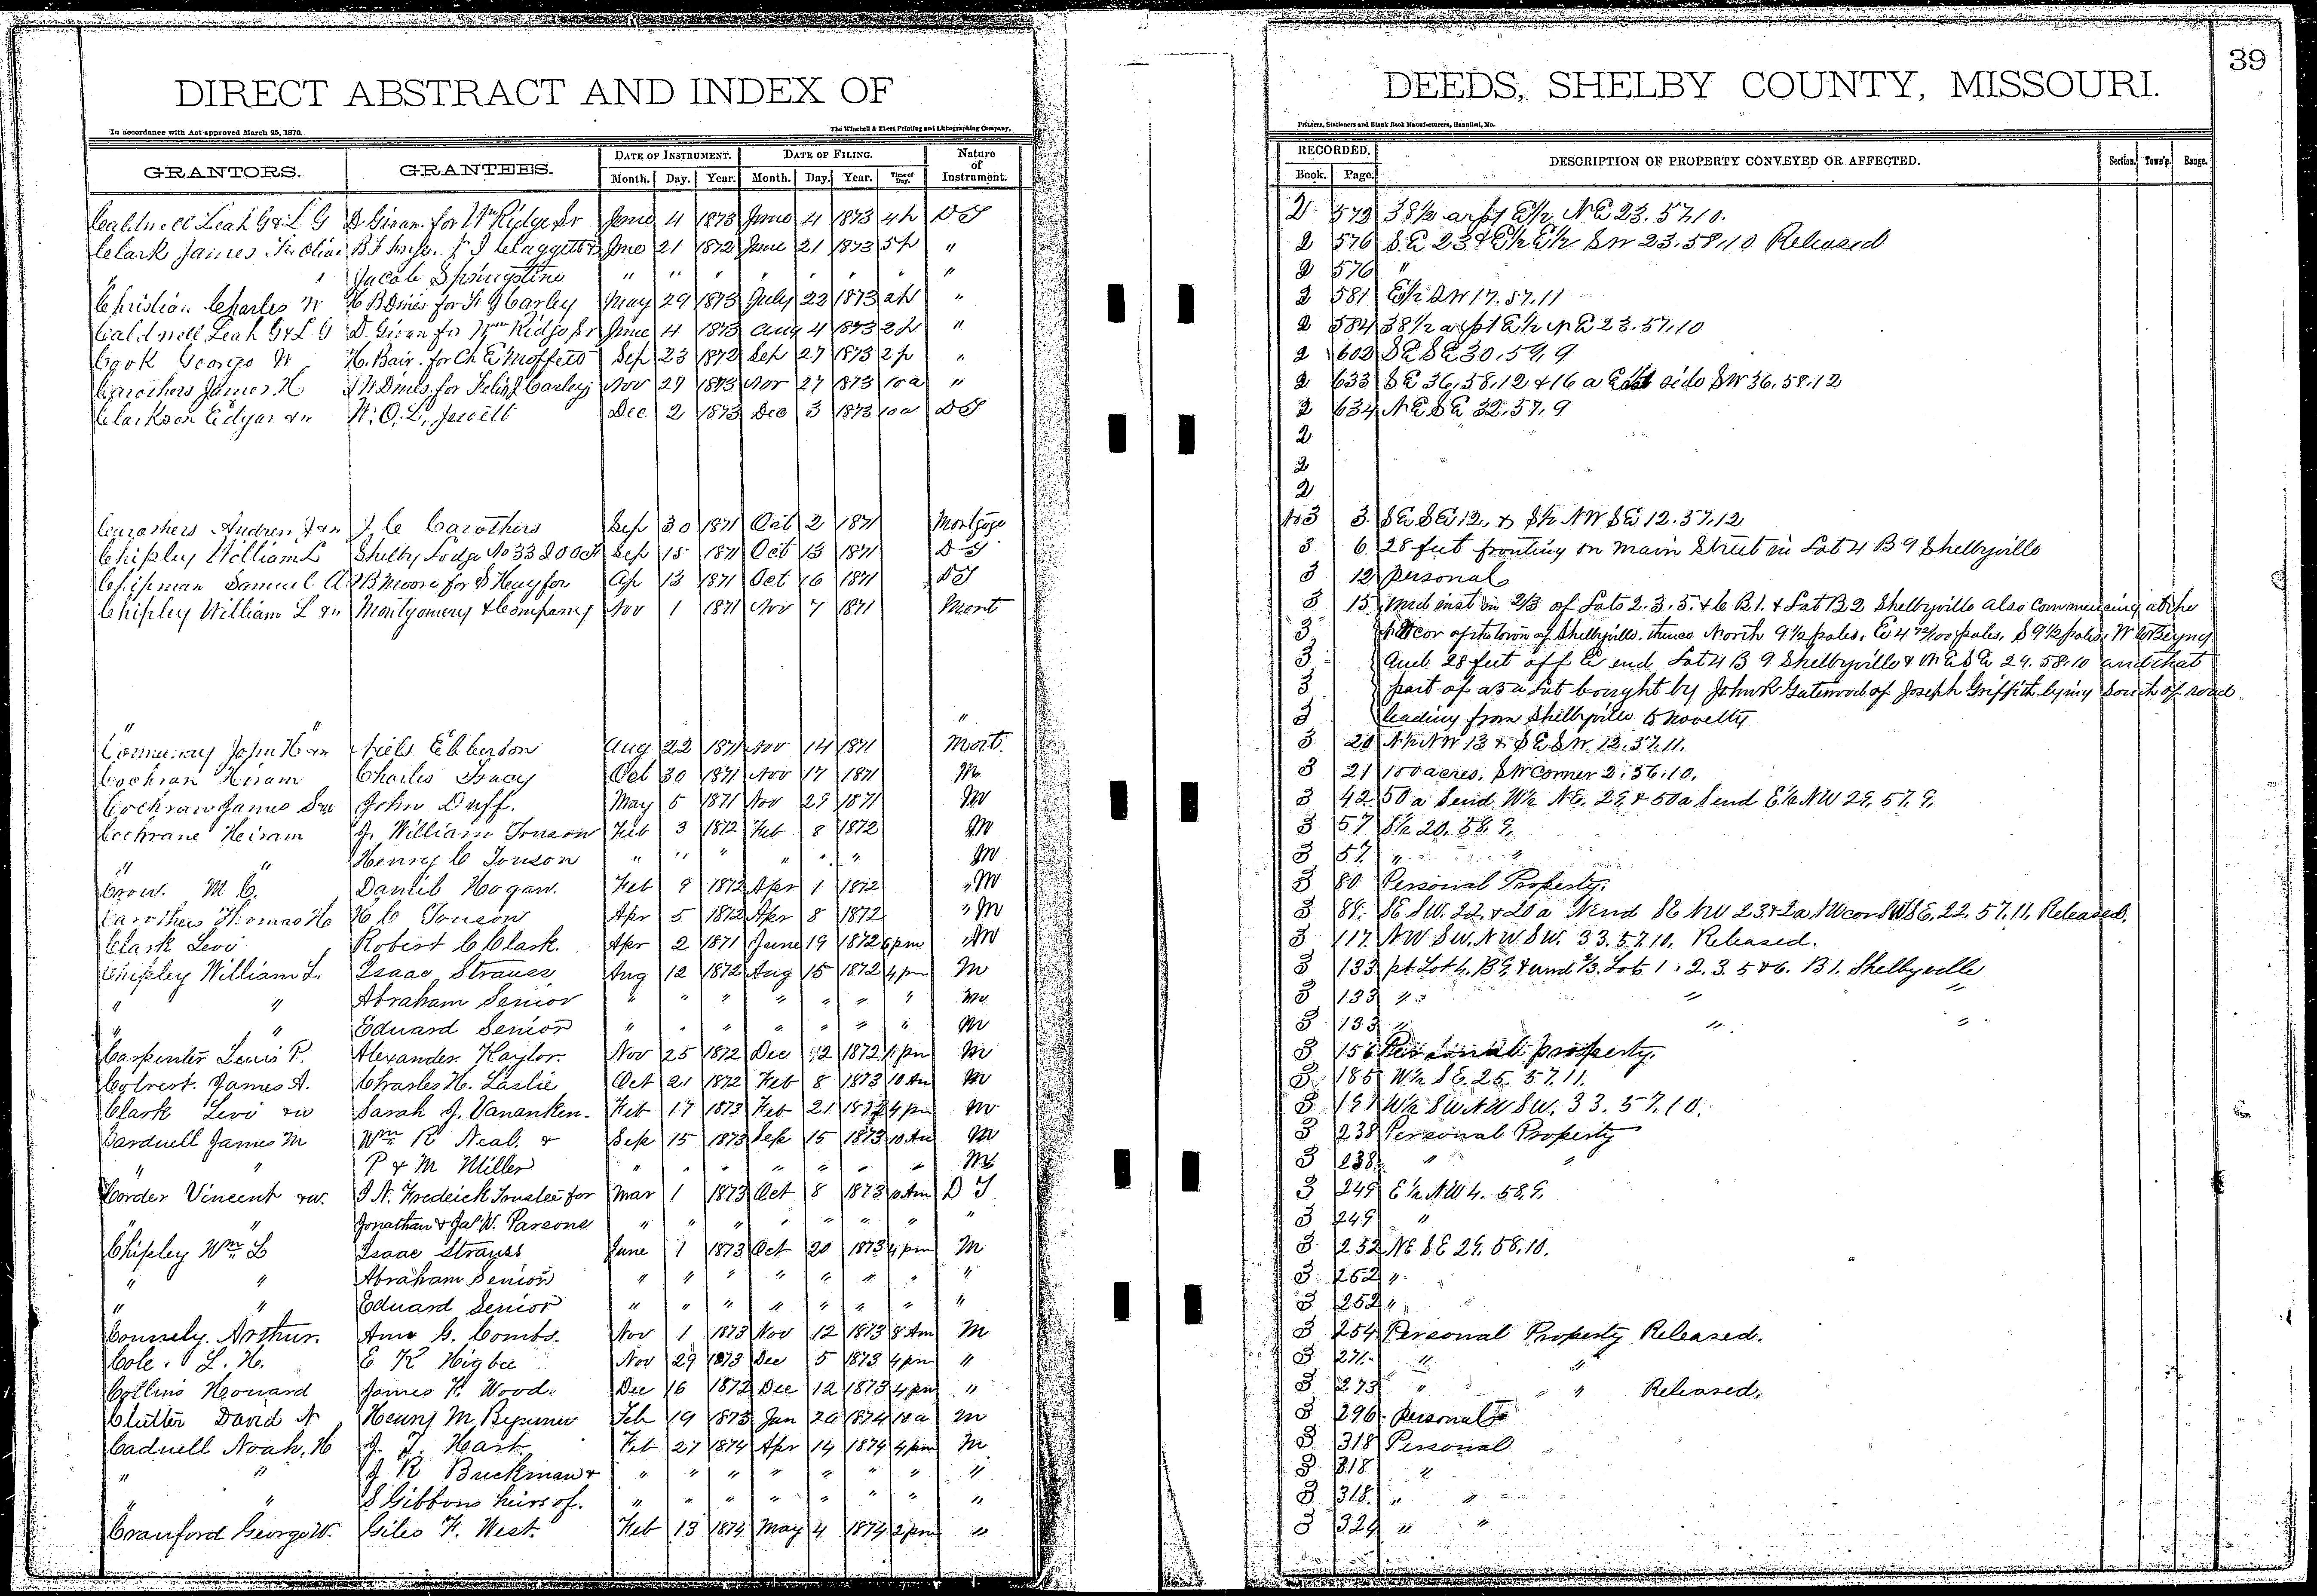 39
DIRECT ABSTRACT AND INDEX OF DEEDS, SHELBY COUNTY, MISSOURI.
In accordance with Act approved March 25, 1870. The Winchell & Ebert Printing and Lithographing Company, Printers, Stationers and Blank Book Manufacturers, Hannibal, Mo.
GRANTORS. GRANTEES. DATE OF INSTRUMENT. DATE OF FILING. Nature of Instrument. RECORDED. DESCRIPTION OF PROPERTY CONVEYED OR AFFECTED. Section. Town'p. Range.
Month. Day. Year. Month. Day. Year. Time of Day. Book. Page.
Caldwell Leah G & L G D Givan for Wm Ridge Sr June 4 1873 June 4 1873 4 h D T 2 573 38 1/2 a pt E 1/2 NE 23. 57. 10.
Clark James B F for J Claggett June 21 1872 June 21 1873 5 h " 2 576 SE 23 & E 1/2 E 1/2 SW 23. 58. 10 Released
" Jacob Springstine " " " " " " " " 2 576 "
Christian Charles W H B Dines for F J Carley May 29 1873 July 22 1873 2 h " 2 581 E 1/2 SW 17. 57. 11
Caldwell Leah G & L G D Givan for Wm Ridge Sr June 4 1873 Aug 4 1873 2 h " 2 584 38 1/2 a pt E 1/2 NE 23. 57. 10
Cook George W H. Bair for Ch E Moffett Sep 23 1872 Sep 27 1873 2 p " 2 602 SE SE 30. 59. 9
Carothers James H Dines for Felix J Carley Nov 27 1873 Nov 27 1873 10 a " 2 633 SE 36. 58. 12 & 16 a East side SW 36. 58. 12
Clarkson Edgar & w W. O. L. Jewett Dec 2 1873 Dec 3 1873 10 a D T 2 634 NE SE 32. 57. 9
2
2
2
Carothers Andrew J & w J. C Carothers Sep 30 1871 Oct 2 1871 Mortgage No 3 3. SE SE 12. & S 1/2 NW SE 12. 57. 12
Chipley William L Shelby Lodge No 33 I O O F Sep 15 1871 Oct 13 1871 D T 3 6 28 feet fronting on Main Street in Lot 4 B 9 Shelbyville
Chipman Samuel A B Moore for S Ap 13 1871 Oct 16 1871 D T 3 12 personal
Chipley William L & w Montgomery & Company Nov 1 1871 Nov 7 1871 Mort 3 15 und inst in 2/3 of Lots 2. 3. 5. & 6 B 1. & Lot B 2 Shelbyville also commencing at the
3 cor of the town of Shelbyville. thence North 9 1/2 poles, E 4 72/100 poles, S 9 1/2 poles, W to Beging
3 And 28 feet off E end Lot 4 B 9 Shelbyville & NE SE 29. 58. 10 and that
3 part of a Lot bought by John R Gatewood of Joseph Griffith lying South of road
" " " 3 leading from Shelbyville to Novelty
John H & w Niels Ebberson Aug 22 1871 Nov 14 1871 Mort. 3 20 N 1/2 NW 13 & SE SW 12. 57. 11.
Cochran Hiram Charles Tracy Oct 30 1871 Nov 17 1871 M 3 21 100 acres. SW corner 2. 56. 10.
Cochran James Sr John Duff. May 5 1871 Nov 29 1871 M 3 42 50 a S end W 1/2 NE. 29. & 50 a S end E 1/2 NW 29. 57. 9.
Cochrane Heiram J. William Touson Feb 3 1872 Feb 8 1872 M 3 57 S 1/2 20. 58. 9.
" " Henry C Touson " " " " " " M 3 57. " "
Crow. M C. Daniel Hogan. Feb 9 1872 Apr 1 1872 " M 3 80 Personal Property.
Carothers Thomas H H C Touson Apr 5 1872 Apr 8 1872 " M 3 84. SE SW. 22. & 20 a N end SE NW 23 & 2 a NW cor SW SE. 22. 57. 11. Released.
Clark Levi Robert C Clark. Apr 2 1871 June 19 1872 6 pm " M 3 117. NW SW. NW SW. 33. 57. 10. Released.
Chipley William L. Isaac Strauss Aug 12 1872 Aug 15 1872 4 pm M 3 133 pt Lot 4. B 9. & und 2/3. Lots 1. 2. 3. 5 & 6. B 1. Shelbyville
" " Abraham Senior " " " " " " " M 3 133 " " "
" " Eduard Senior " " " " " " " M 3 133 " " "
Carpenter Lewis P. Alexander Kaylor Nov 25 1872 Dec 12 1872 pm M 3 156 Personal property.
Colvert. James A. Charles H. Laslie Oct 21 1872 Feb 8 1873 10 Am M 3 185 W 1/2 SE. 25. 57. 11.
Clark Levi & w Sarah J. Vananken. Feb 17 1873 Feb 21 1873 4 pm M 3 191 W 1/2 SW NW SW. 33. 57. 10.
Carduell James M Wm R Neal. & Sep 15 1873 Sep 15 1873 10 Am M 3 238 Personal Property
" " P & M Miller " " " " " " " M 3 238. " "
Corder Vincent & w. I N. Fredeick Trustee for Mar 1 1873 Oct 8 1873 10 Am D T 3 249 E 1/2 NW 4. 58. 9.
" " Jonathan & Jas W. Parsons " " " " " " " " 3 249 "
Chipley Wm L Isaac Strauss June 1 1873 Oct 20 1873 4 pm M 3 252 NE SE 29. 58. 10.
" " Abraham Senior " " " " " " " " 3 252 "
" " Eduard Senior " " " " " " " " 3 252 "
Connely. Arthur. Amo G. Combs. Nov 1 1873 Nov 12 1873 8 Am M 3 254 Personal Property Released.
Cole. L. H. E K Higbee Nov 29 1873 Dec 5 1873 4 pm " 3 271. " "
Collins Howard James H. Wood. Dec 16 1872 Dec 12 1873 4 pm " 3 273 " " Released.
Clutter David N Henry M Feb 19 1873 Jan 20 1874 10 a M 3 296. personal
Caduell Noah. H J. T. Hart Feb 27 1874 Apr 14 1874 4 pm M 3 318 Personal
" " J R Buckman & " " " " " " " " 3 318 "
" " S Gibbons heirs of. " " " " " " " " 3 318. " "
Cranford George W. Giles H. West. Feb 13 1874 May 4 1874 2 pm " 3 324 " "